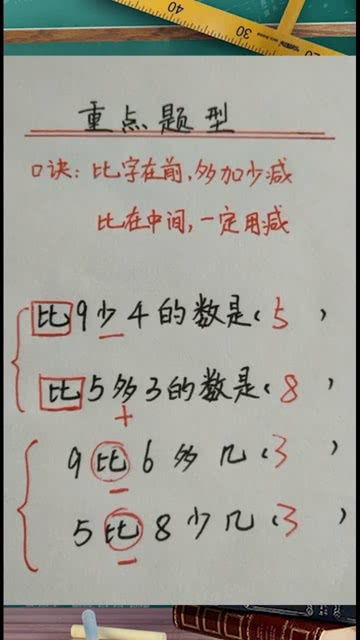 40
30
20
重点题型
口诀：比字在前，多加少减
比在中间，一定用减
比9少4的数是（5）
－
比5多3的数是（8）
＋
9比6多几（3）
－
5比8少几（3）
－